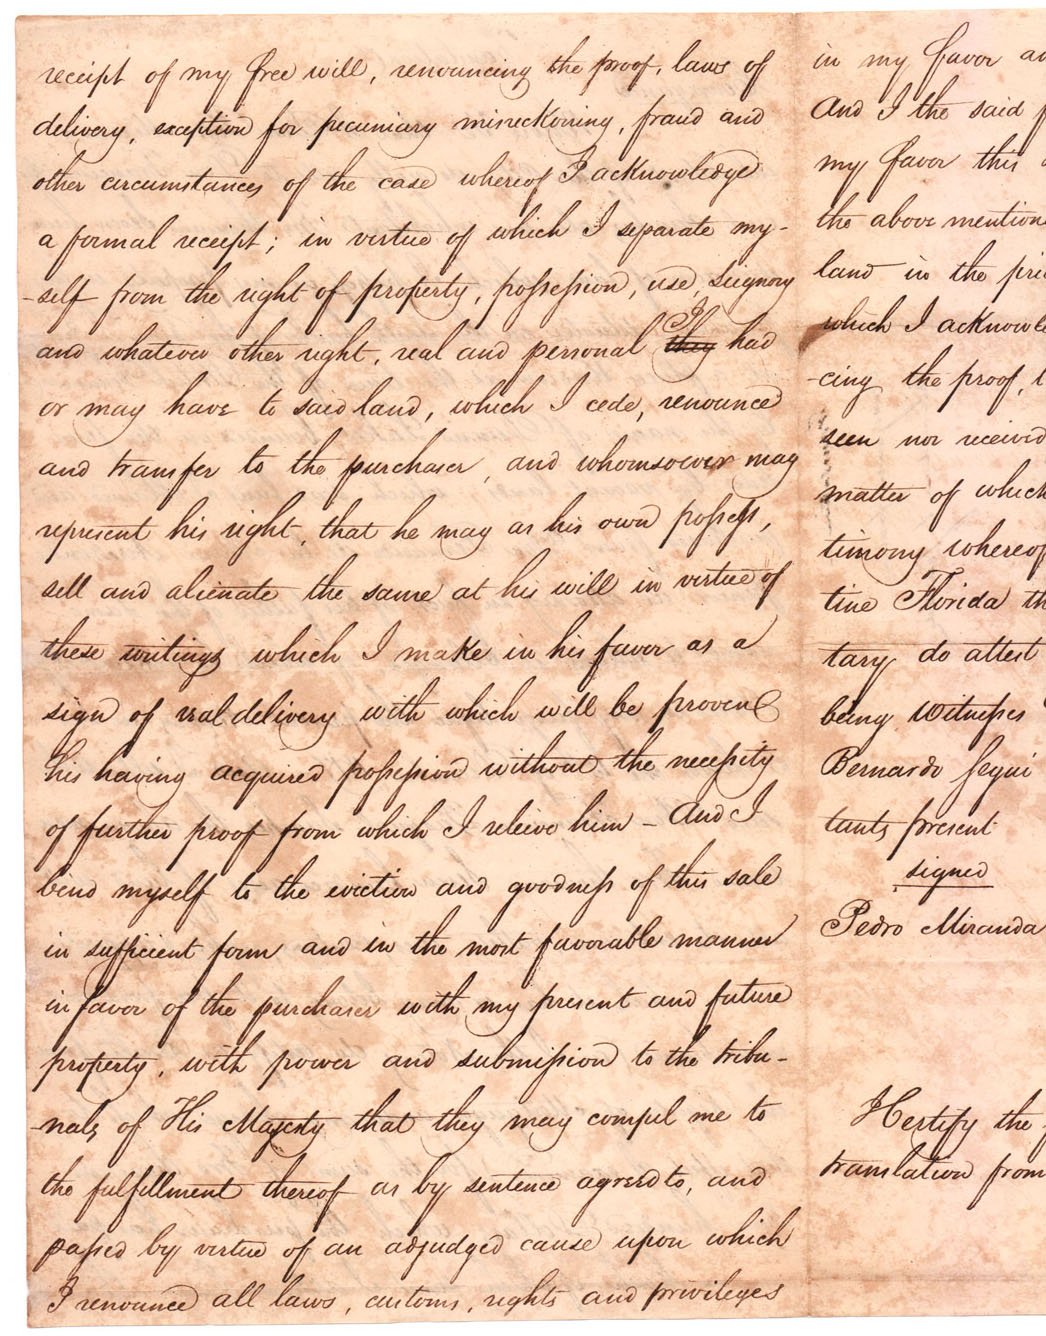 receipt of my free will, renouncing the proof, laws of
delivery, exception for pecuniary misreckoning, fraud and
other circumstances of the case whereof I acknowledge
a formal receipt; in virtue of which I separate my-
-self from the right of property, possession, use, seignory
and whatever other right, real and personal ~~they~~ I had
or may have to said land, which I cede, renounce
and transfer to the purchaser, and whomsoever may
represent his right, that he may as his own possess,
sell and alienate the same at his will in virtue of
these writings which I make in his favor as a
sign of real delivery with which will be proven
his having acquired possession without the necessity
of further proof from which I releive him - And I
bind myself to the eviction and goodness of this sale
in sufficient form and in the most favorable manner
in favor of the purchaser with my present and future
property, with power and submission to the tribu-
-nals of His Majesty that they may compel me to
the fulfillment thereof as by sentence agreed to, and
passed by virtue of an adjudged cause upon which
I renounce all laws, customs, rights and privileges
in my favor
And I the said
my favor this
the above mention
land in the
which I
-cing the proof,
seen nor received
matter of which
timony whereof
tine Florida
tary do attest
being witnesses
Bernardo Segui
tants present
signed
Pedro Miranda
I Certify the
translation from